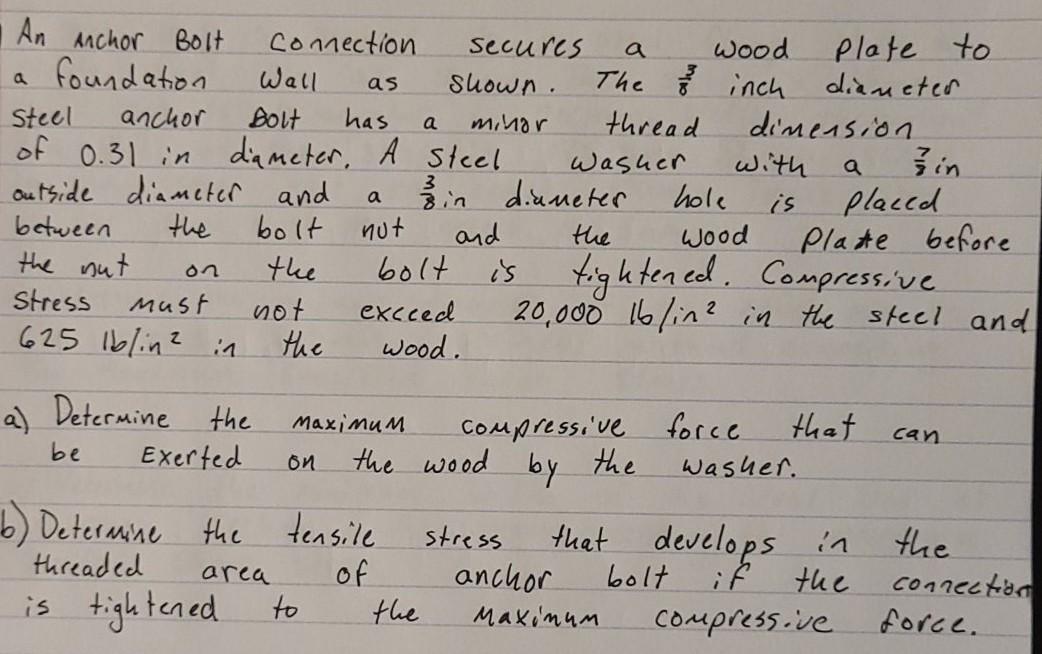 An Anchor Bolt Connection secures a wood plate to
a foundation Wall as shown. The 3/8 inch diameter
Steel anchor Bolt has a minor thread dimension
of 0.31 in diameter. A Steel washer with a 7/8 in
outside diameter and a 3/8 in diameter hole is placed
between the bolt nut and the wood Plate before
the nut on the bolt is tightened. Compressive
Stress must not exceed 20,000 lb/in² in the steel and
625 lb/in² in the wood.
a) Determine the maximum compressive force that can
be Exerted on the wood by the washer.
b) Determine the tensile stress that develops in the
threaded area of anchor bolt if the connection
is tightened to the Maximum compressive force.